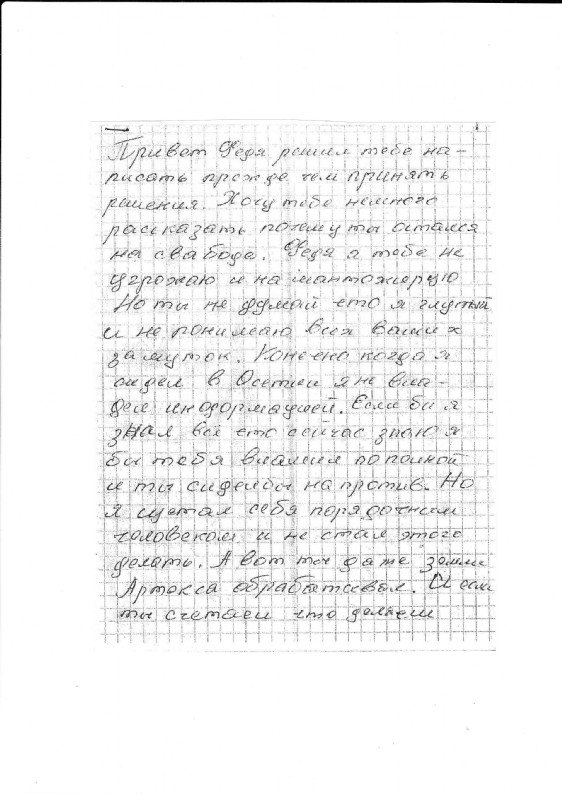 Привет Федя решил тебе на-
писать прежде чем принять
решения. Хочу тебе немного
рассказать почему ты остался
на свабоде. Федя я тебе не
угрожаю и на шантожирую
Но ты не думай что я глупый
и не понимаю всех ваших
замуток. Конечно когда я
сидел в Осетии я не вла-
дел информацией. Если бы я
знал всё что сейчас знаю я
бы тебя вламил по полной
и ты сидел бы на против. Но
я щетал себя порядочным
человеком и не стал этого
делать. А вот ты даже земли
Артекса обрабатывал. И если
ты счетаеш что делаеш